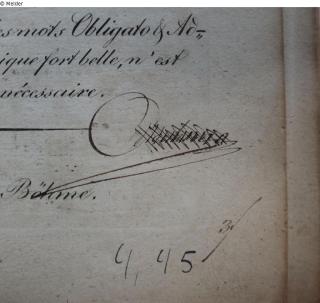 © Melder
es mots Obligato & Ad=
ique fort belle, n'est
nécessaire.
Böhme.
3/
4,45